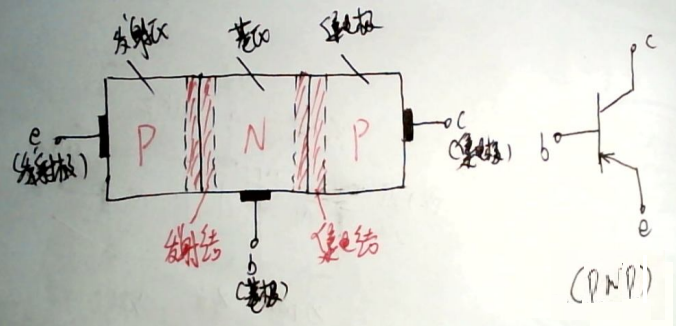 发射区 基区 集电极
P N P
e
(发射极)
c
(集电极)
发射结 集电结
b
(基极)
c
b
e
(PNP)